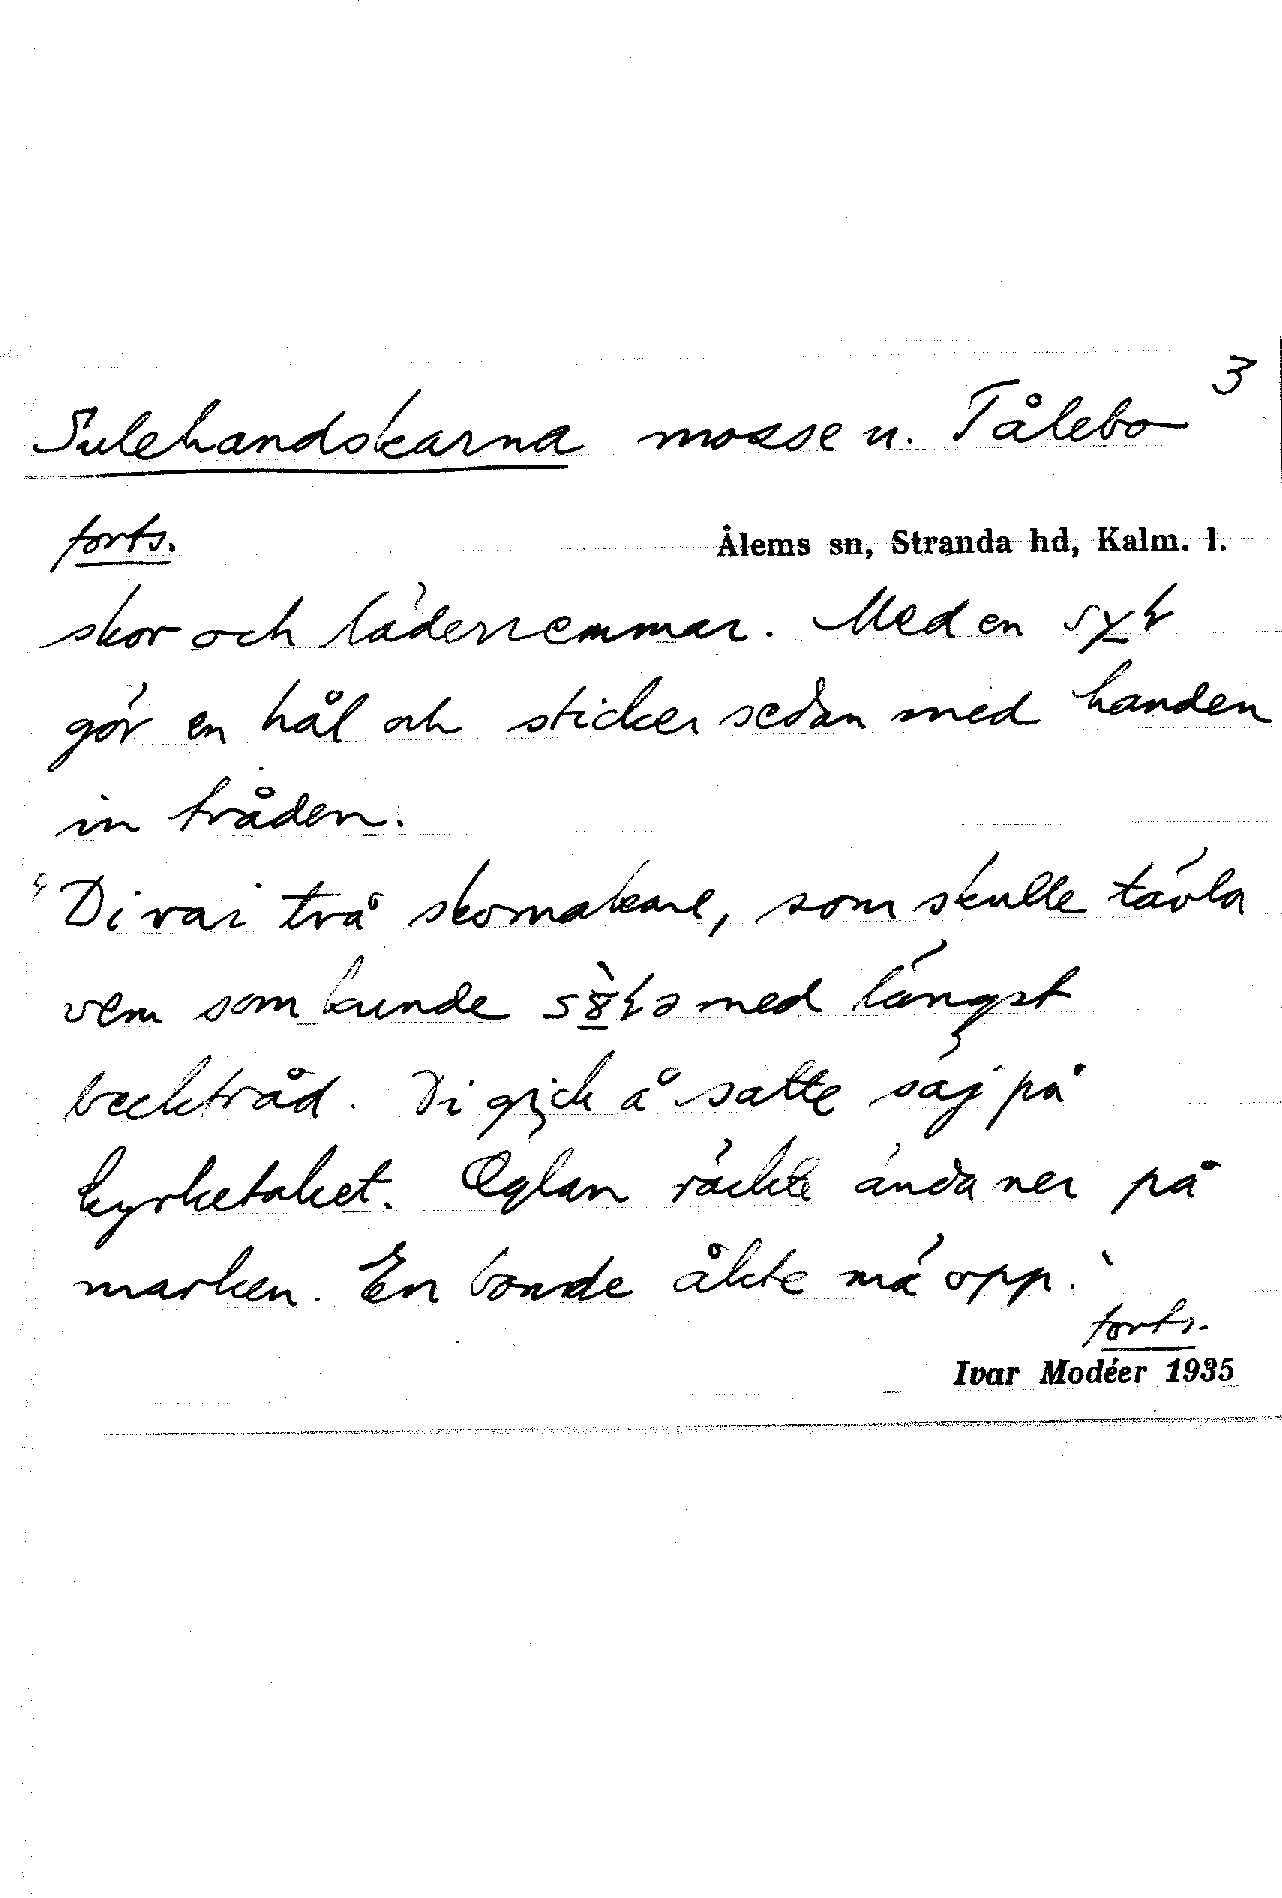 3
Sulehandskarna mosse u. Tålebo
forts.
Ålems sn, Stranda hd, Kalm. l.
skor och läderremmar. Med en
gör en hål och sticker sedan med handen
in tråden.
"Di var två skomakare, som skulle tävla
vem som kunde med längst
becktråd. Di gick å satte säj på
kyrketaket. Öglan räckte ända ner på
marken. En bonde åkte mä opp."
forts.
Ivar Modéer 1935